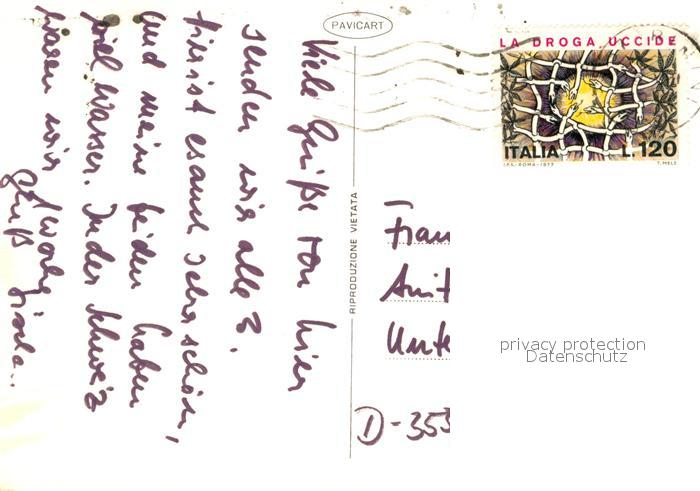 PAVICART
LA DROGA UCCIDE
ITALIA L.120
I.P.S.-ROMA-1977 T. MELE
RIPRODUZIONE VIETATA
Viele Grüße von hier
senden wir alle 3.
Hier ist es auch sehr schön,
und meine beiden haben
viel Wasser. In der Schweiz
waren wir 1 Woche
Gruß
Frau
Anit
Unte
D-355
privacy protection
Datenschutz